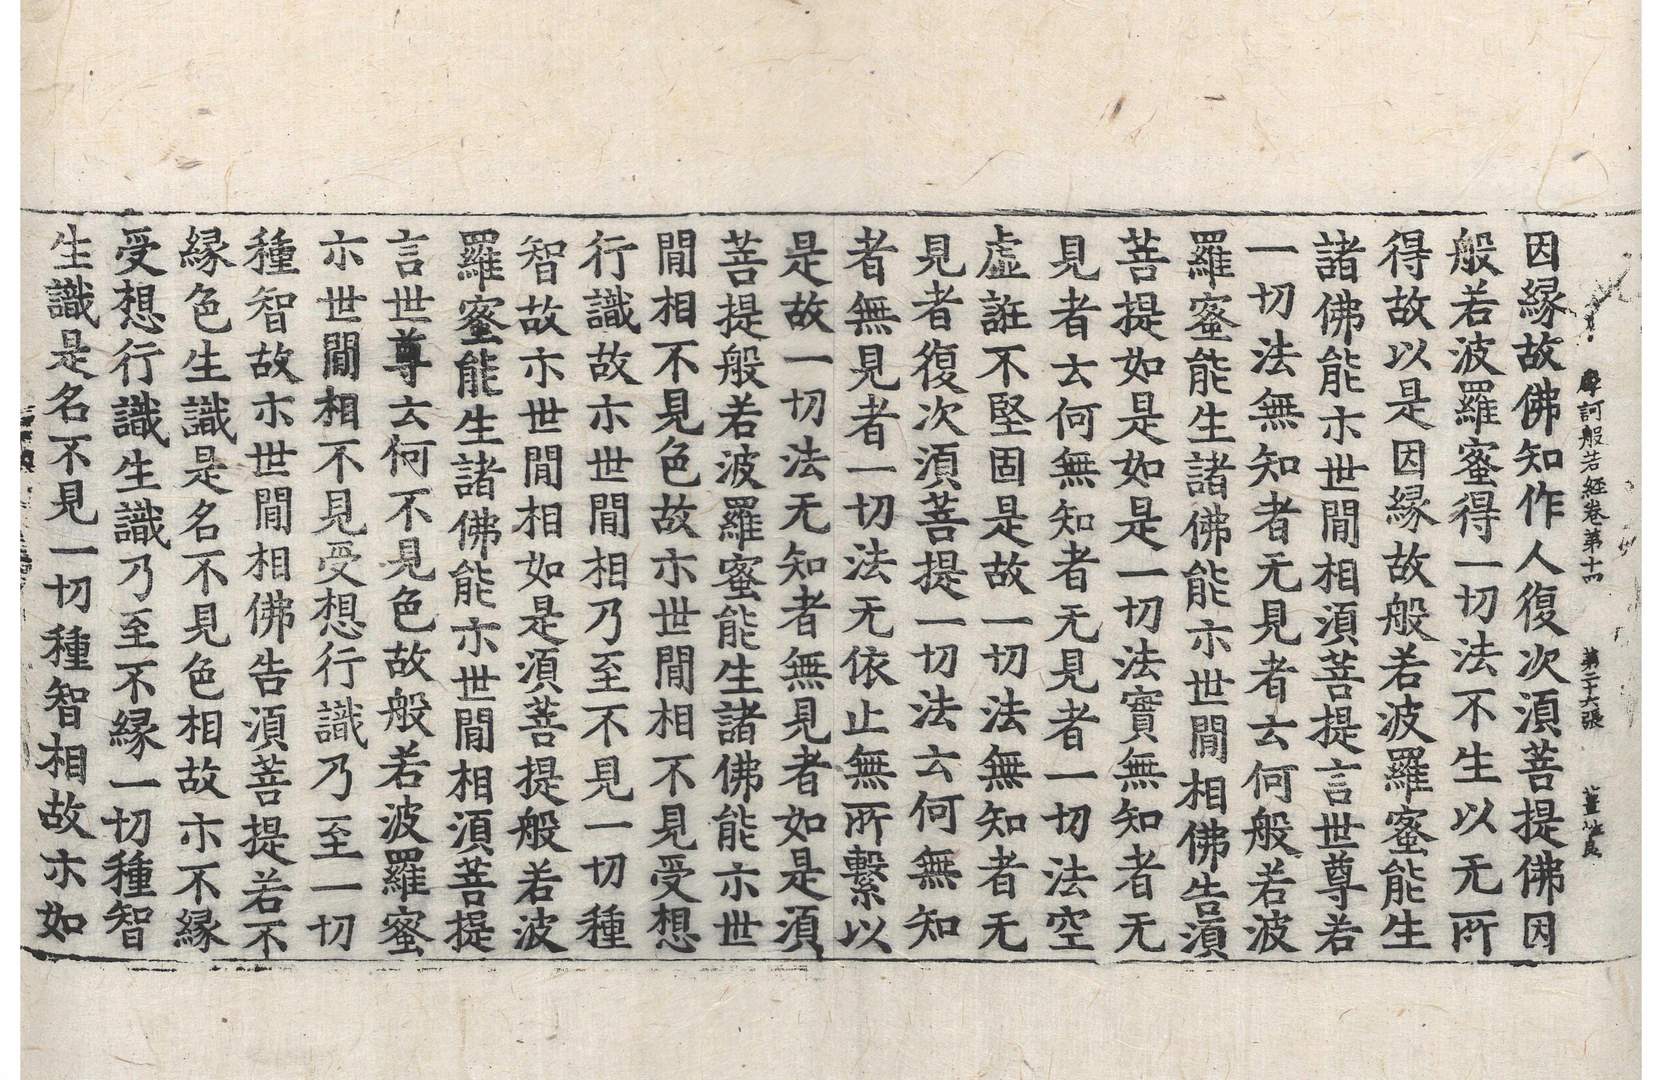 摩訶般若経卷第十四 第二十六張
因縁故佛知作人復次湏菩提佛因
般若波羅蜜得一切法不生以无所
得故以是因縁故般若波羅蜜能生
諸佛能示世閒相湏菩提言世尊若
一切法無知者无見者云何般若波
羅蜜能生諸佛能示世閒相佛告湏
菩提如是如是一切法實無知者无
見者云何無知者无見者一切法空
虚誑不堅固是故一切法無知者无
見者復次湏菩提一切法云何無知
者無見者一切法无依止無所繫以
是故一切法无知者無見者如是湏
菩提般若波羅蜜能生諸佛能示世
閒相不見色故示世閒相不見受想
行識故示世閒相乃至不見一切種
智故示世閒相如是湏菩提般若波
羅蜜能生諸佛能示世閒相湏菩提
言世尊云何不見色故般若波羅蜜
示世閒相不見受想行識乃至一切
種智故示世閒相佛告湏菩提若不
縁色生識是名不見色相故示不縁
受想行識生識乃至不縁一切種智
生識是名不見一切種智相故示如